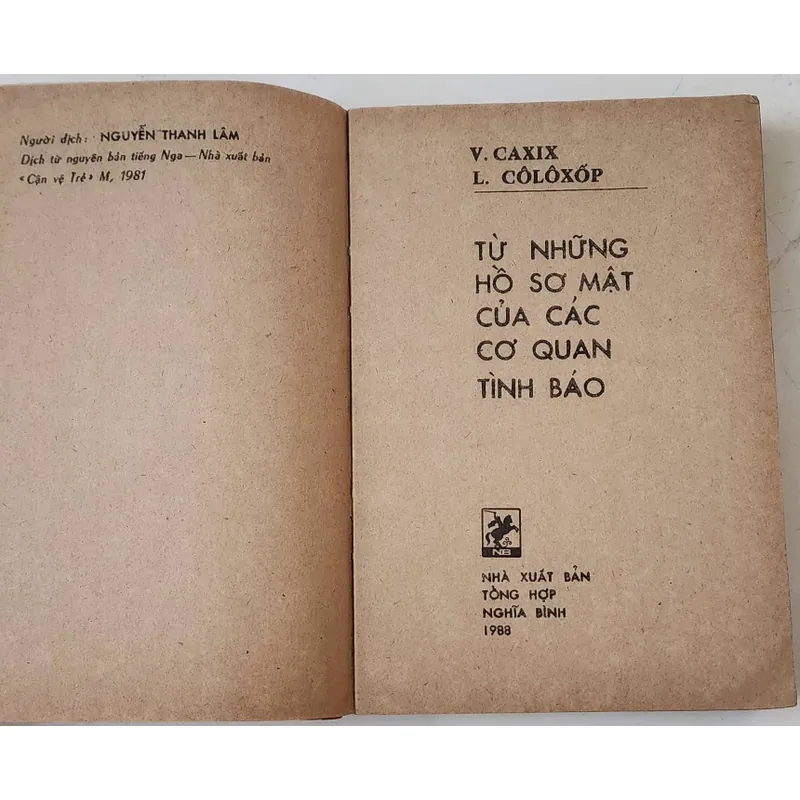 Người dịch: NGUYỄN THANH LÂM
Dịch từ nguyên bản tiếng Nga—Nhà xuất bản
«Cận vệ Trẻ» M, 1981
V. CAXIX
L. CÔLÔXỐP
TỪ NHỮNG
HỒ SƠ MẬT
CỦA CÁC
CƠ QUAN
TÌNH BÁO
NB
NHÀ XUẤT BẢN
TỔNG HỢP
NGHĨA BÌNH
1988